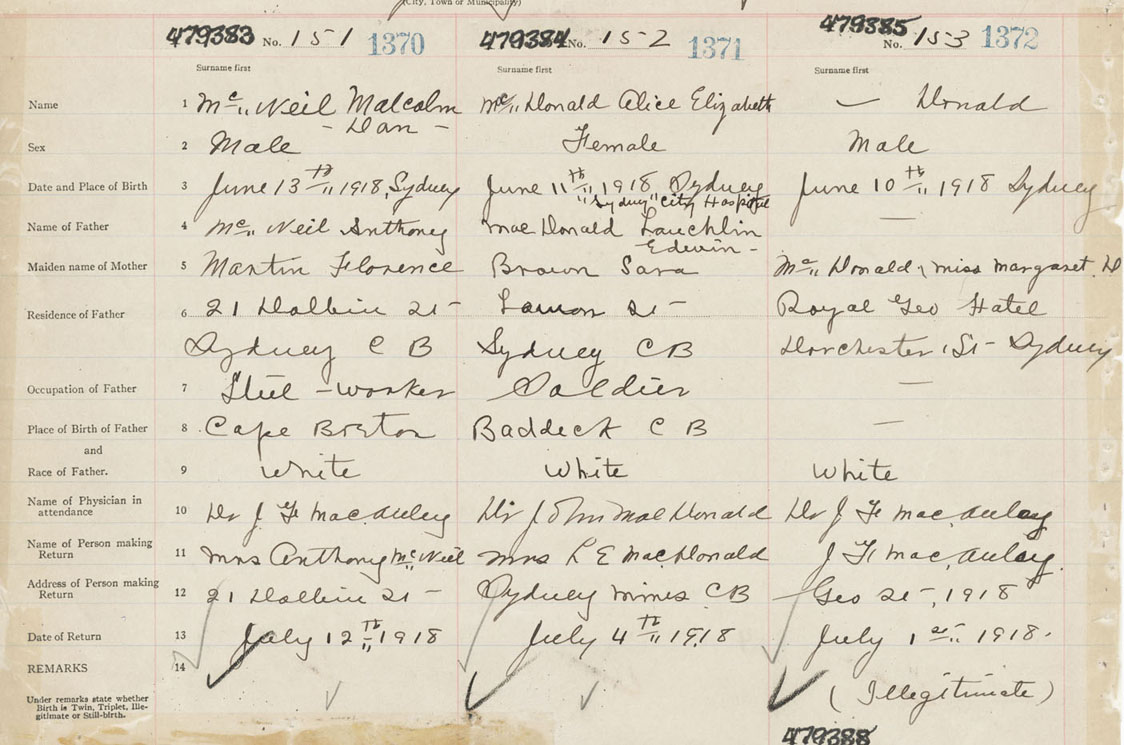 (City, Town or Municipality)
479383 No. 151 1370 479384 No. 152 1371 479385 No. 153 1372
Surname first Surname first Surname first
Name 1 Mc Neil Malcolm Mc Donald Alice Elizabeth — Donald
- Dan -
Sex 2 Male Female Male
Date and Place of Birth 3 June 13th 1918, Sydney June 11th 1918, Sydney June 10th 1918 Sydney
"Sydney" City Hospital
Name of Father 4 Mc Neil Anthony Mac Donald Lauchlin —
Edwin -
Maiden name of Mother 5 Martin Florence Brown Sara Mc Donald, Miss Margaret
Residence of Father 6 21 St St Royal Geo Hotel
Sydney C B Sydney CB Dorchester St Sydney
Occupation of Father 7 Steel - worker Soldier —
Place of Birth of Father 8 Cape Breton Baddeck C B —
and
Race of Father. 9 White White White
Name of Physician in
attendance 10 Dr J F MacAuley Dr John MacDonald Dr J F MacAulay
Name of Person making
Return 11 Mrs Anthony Mc Neil Mrs L E MacDonald J F MacAulay
Address of Person making
Return 12 21 St Sydney Mines CB Geo St, 1918
Date of Return 13 July 12th 1918 July 4th 1918 July 1st 1918.
REMARKS 14
Under remarks state whether
Birth is Twin, Triplet, Ille-
gitimate or Still-birth.
(Illegitimate)
479388